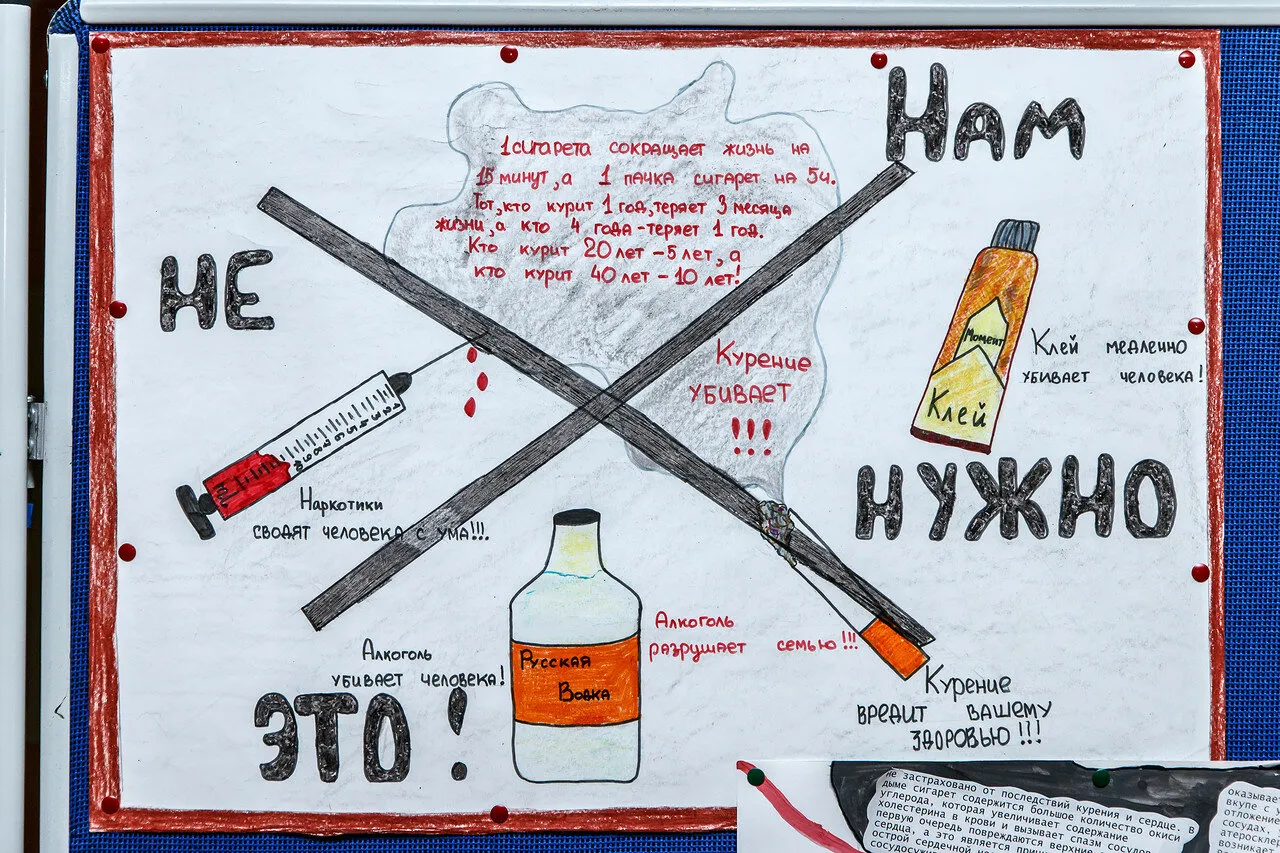 Нам
1 сигарета сокращает жизнь на
15 минут, а 1 пачка сигарет на 5ч.
Тот, кто курит 1 год, теряет 3 месяца
жизни, а кто 4 года - теряет 1 год.
Кто курит 20 лет - 5 лет, а
кто курит 40 лет - 10 лет!
НЕ
Курение
убивает
!!!
Момент
Клей
Клей медленно
убивает человека!
НУЖНО
Наркотики
сводят человека с ума!!!
Алкоголь
разрушает семью!!!
Алкоголь
убивает человека!
Русская
Водка
ЭТО!
Курение
вредит вашему
здоровью!!!
не застраховано от последствий курения и сердце. В
дыме сигарет содержится большое количество окиси
углерода, которая увеличивает содержание
холестерина в крови и вызывает спазм сосудов
первую очередь повреждаются верхние
сердца, а это является
острой сердечной
оказывае
вкупе с
отложение
сосудах
атероскле
возникает